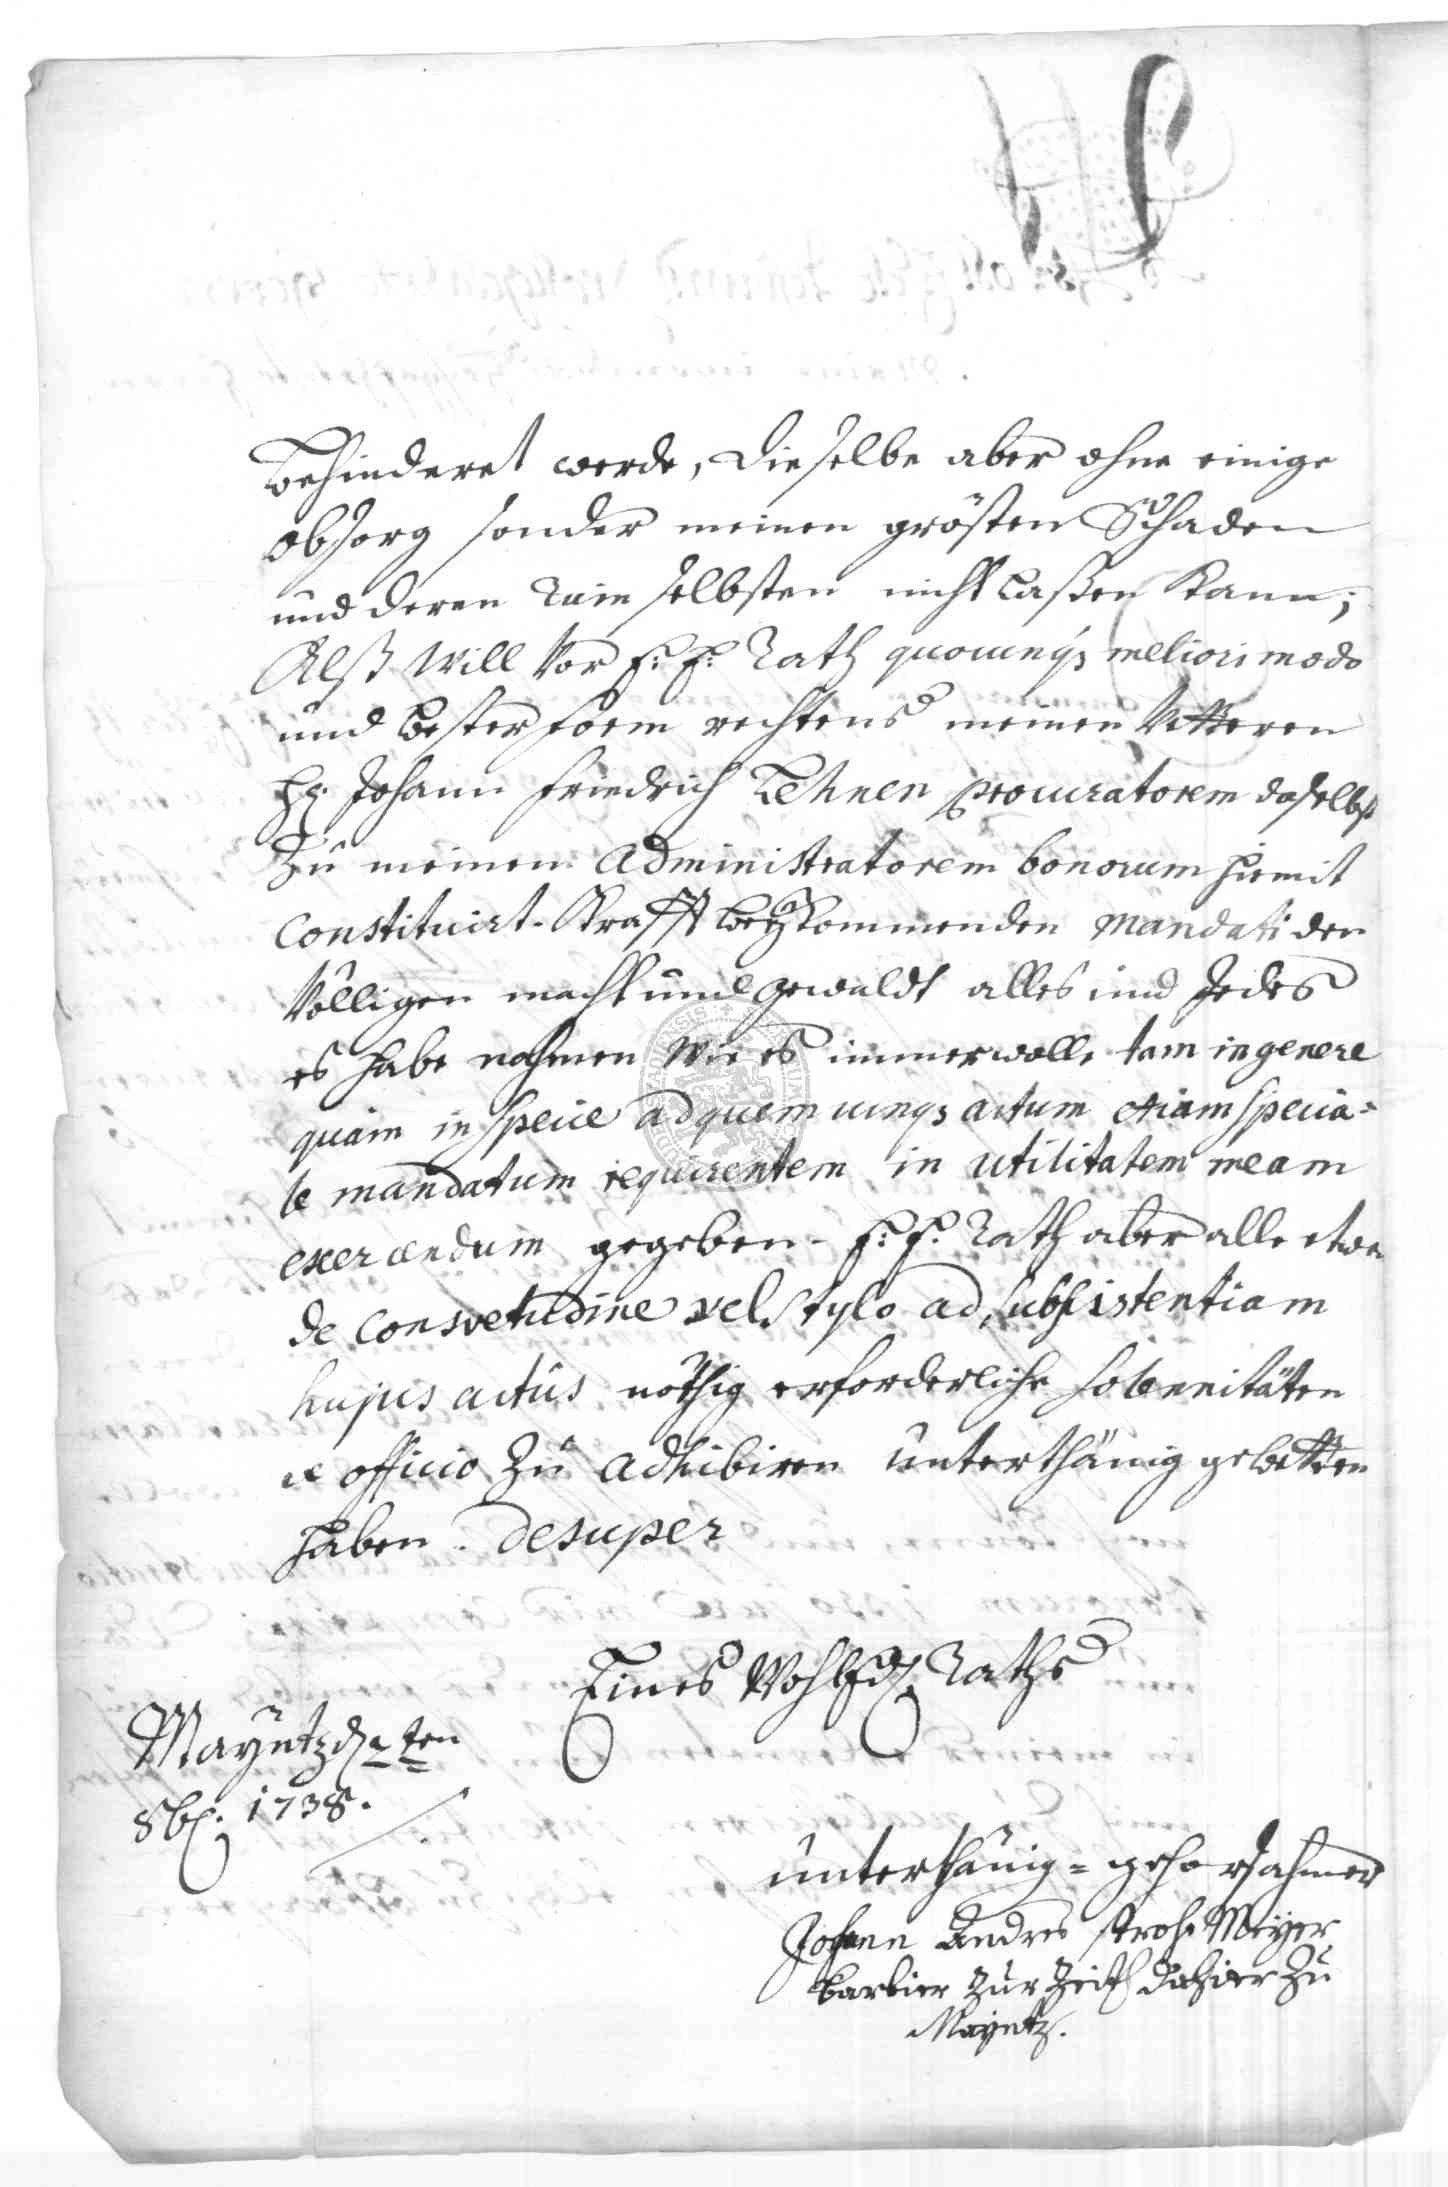 behinderet werde, dieselbe aber ohne einige
obsorg sonder meinen grösten Schaden
und deren ruin selbsten nicht laßen kann;
Alß will vor E: E: Rath quocunq3 meliori modo
und bester form rechtens meinen Vetteren
H: Johann Friedrich Lehnen procuratorem daselbst
zu meinem administratorem bonorum hiemit
constituirt. Krafft beykommenden mandati den
Völligen macht und gewaldt alles und Jedes
es habe nahmen wie es immer wolle tam in genere
quam in specie ad quemcunq3 actum etiam specia=
le mandatum requirentem in utilitatem meam
exercendum gegeben. E: E: Rath aber alle etwa
de consvetudine vel stylo ad subsistentiam
hujus actûs nöthig erforderliche solennitäten
ex officio zu adhibiren unterthänig gebetten
haben. desuper
Eines WohlEd: Raths
Mayntz d 2ten
8b: 1738.
unterthänig = gehorsahmer
Johann Andres StrohMeyer
barbier zur Zeit dahier zu
Mayntz.